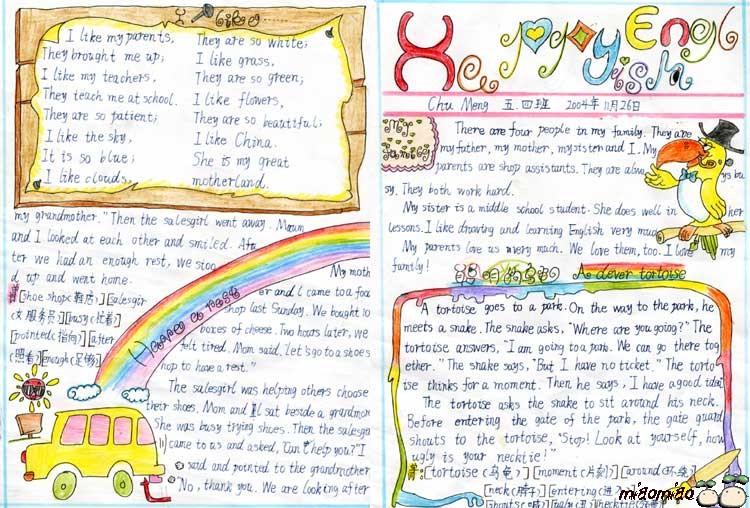 I Like
I like my parents,
They brought me up;
I like my teachers,
They teach me at school.
They are so patient;
I like the sky,
It is so blue;
I like clouds,
They are so white;
I like grass,
They are so green;
I like flowers,
They are so beautiful;
I like China.
She is my great
motherland.
Have a rest
My moth
er and I came to a foo
shop last Sunday. We bought 10
boxes of cheese. Two hours later, we
felt tired. Mom said. Let's go to a shoes
hop to have a rest."
The salesgirl was helping others choose
their shoes. Mom and I sat beside a grandmom
She was busy trying shoes. Then the salesgi
came to us and asked, "Can I help you?" I
said and pointed to the grandmother
"No, thank you. We are looking after
my grandmother." Then the salesgirl went away. Mum
and I looked at each other and smiled. Af
ter we had an enough rest, we stoo
d up and went home.
[shoe shop(鞋店)][salesgir
(女服务员)][busy(忙着)]
[pointed(指向)][after
(照看)][enough(足够)]
Happy English
Chu Meng 五四班 2004年11月26日
My family
There are four people in my family. They are
my father, my mother, my sister and I. My
parents are shop assistants. They are alw ys bu
sy. They both work hard.
My sister is a middle school student. She does well in her
lessons. I like drawing and learning English very mu
My parents love us very much. We love them, too. I love my
family!
聪明的乌龟 A clever tortoise
A tortoise goes to a park. On the way to the park, he
meets a snake. The snake asks, "Where are you going?" The
tortoise answers, "I am going to a park. We can go there tog
ether." The snake says, "But I have no ticket." The torto
ise thinks for a moment. Then he says, I have a good idea!
The tortoise asks the snake to sit around his neck.
Before entering the gate of the park, the gate guard
shouts to the tortoise, "Stop! Look at yourself, how
ugly is your necktie!"
[tortoise(乌龟)][moment(片刻)][around(环绕)]
[neck(脖子)][entering(进入)]
[shouts(喊)][ugly(丑)][necktie
miaomiao